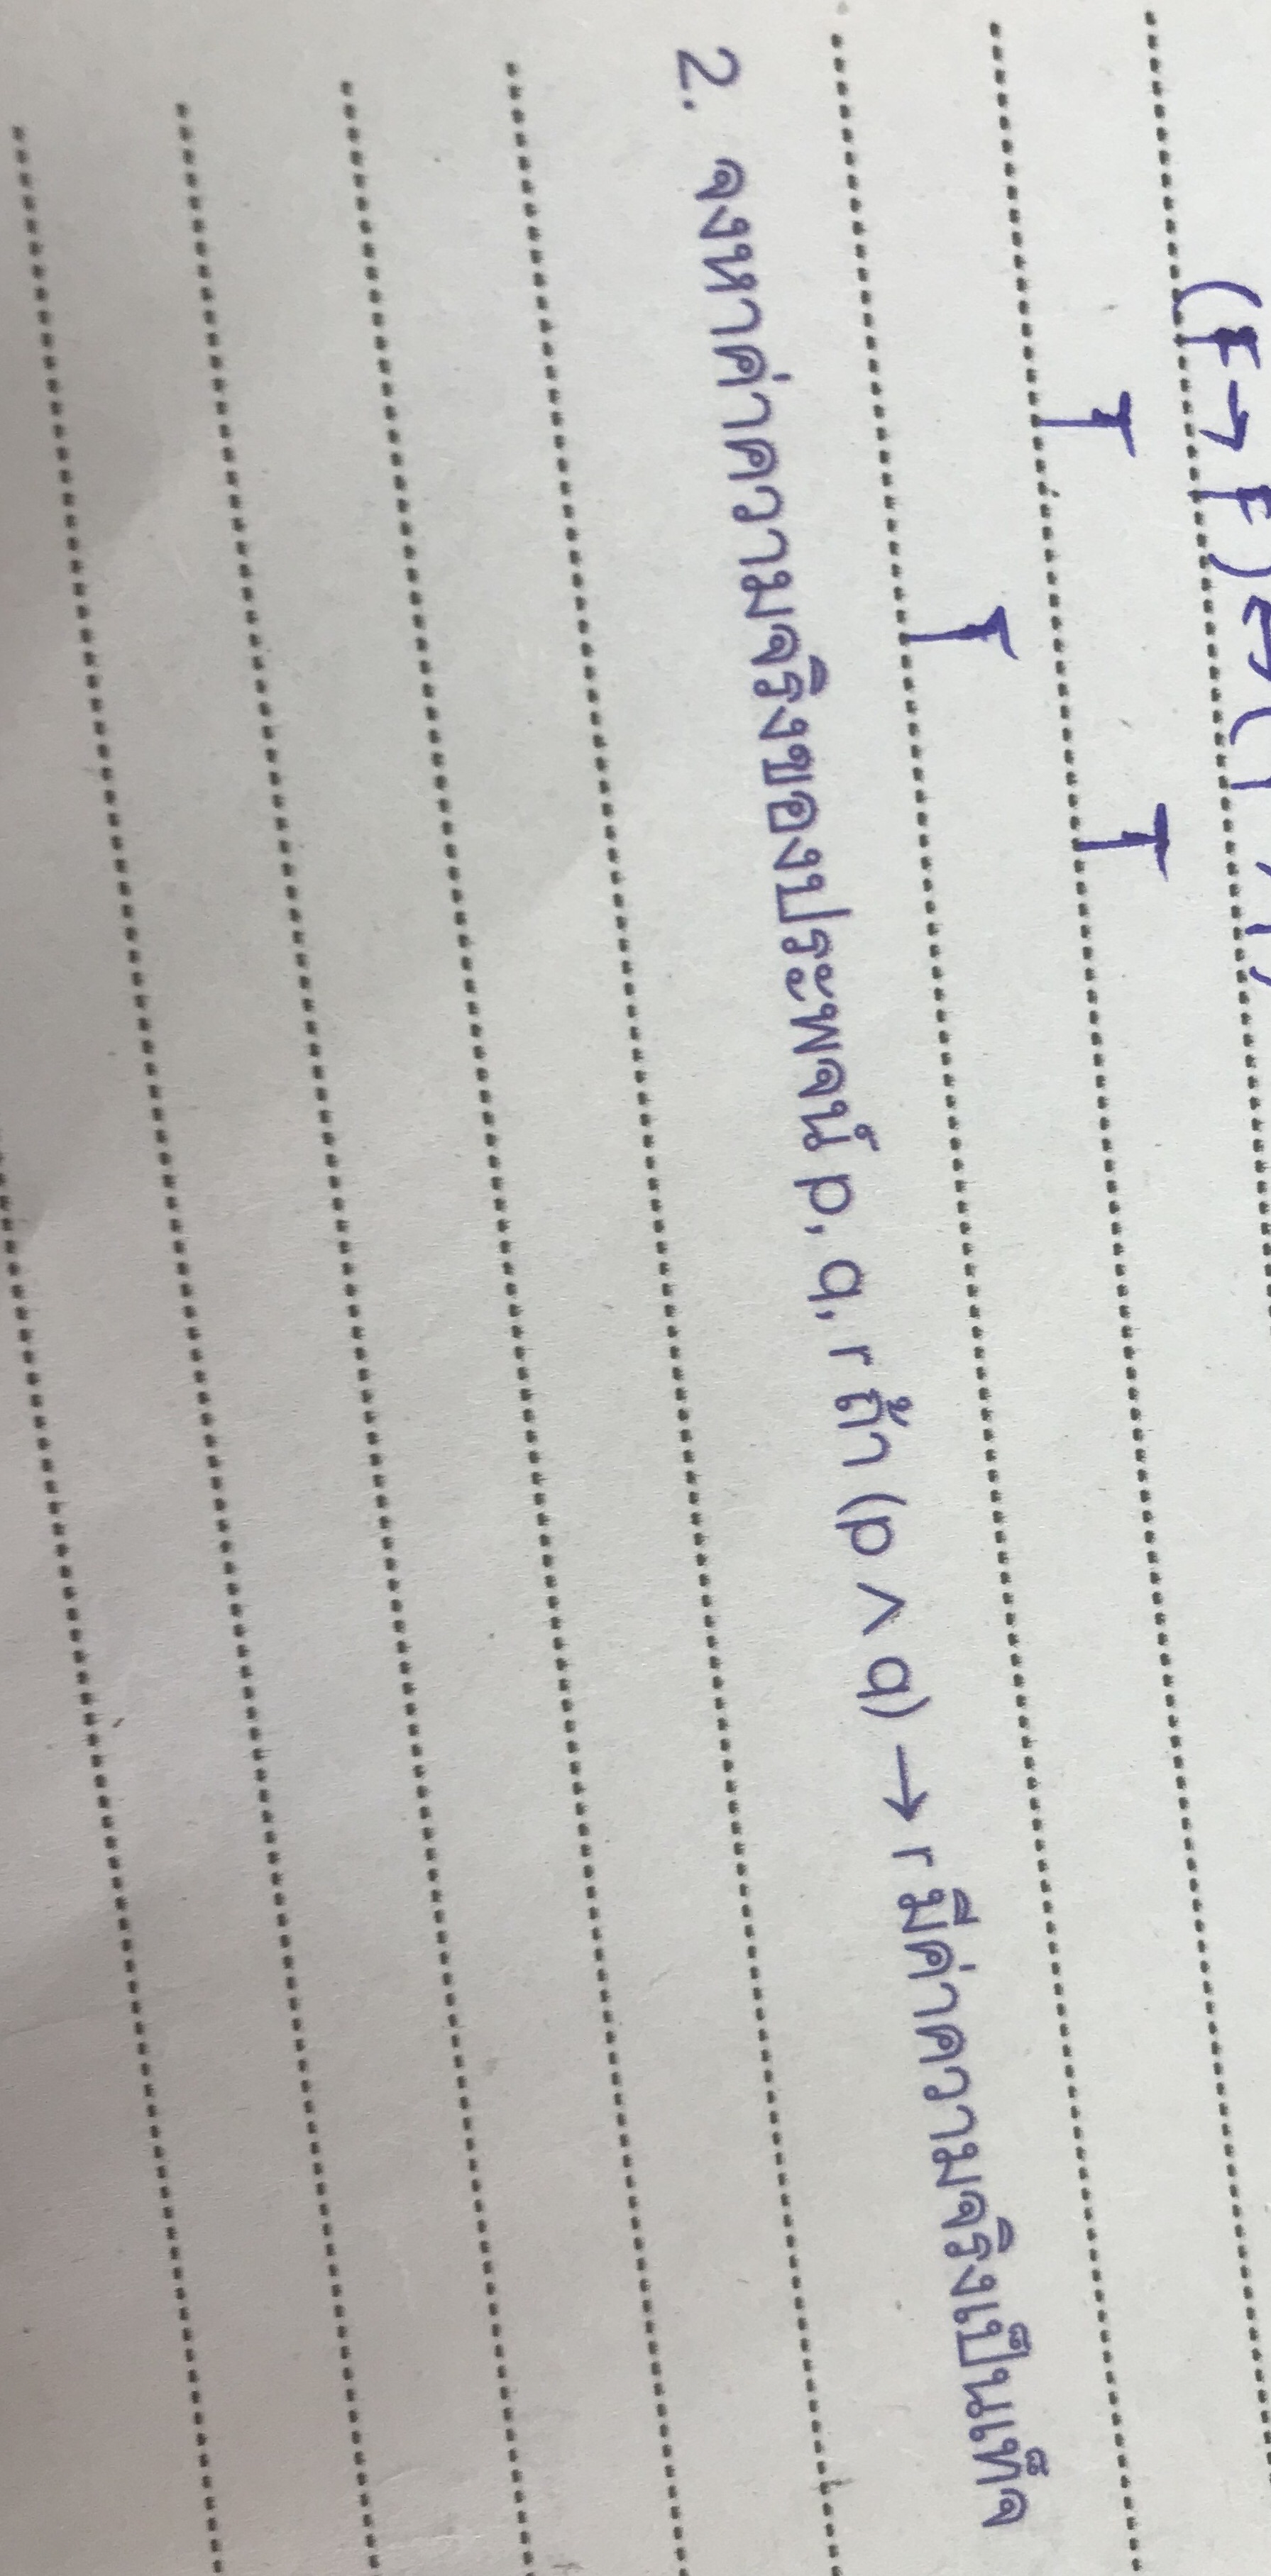 (F→F)↔(
T T
T
2. จงหาค่าความจริงของประพจน์ p, q, r ถ้า (p ∧ q) → r มีค่าความจริงเป็นเท็จ